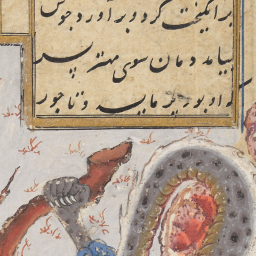 بر انگیخت گرد و بر آورد جوش
بیامد دمان سوی مهتر پسر
که او بود پر مایه و تاجور